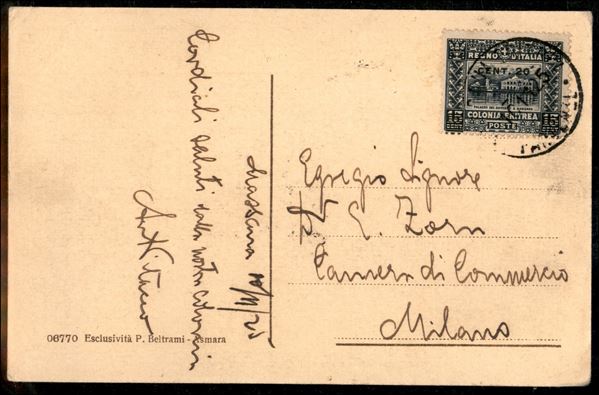 Cordiali saluti dalla nostra
Massaua
REGNO D'ITALIA
CENT. 20
15 15
COLONIA ERITREA
POSTE
Egregio Signore
E. Zorn
Camera di Commercio
Milano
06770 Esclusività P. Beltrami - Asmara